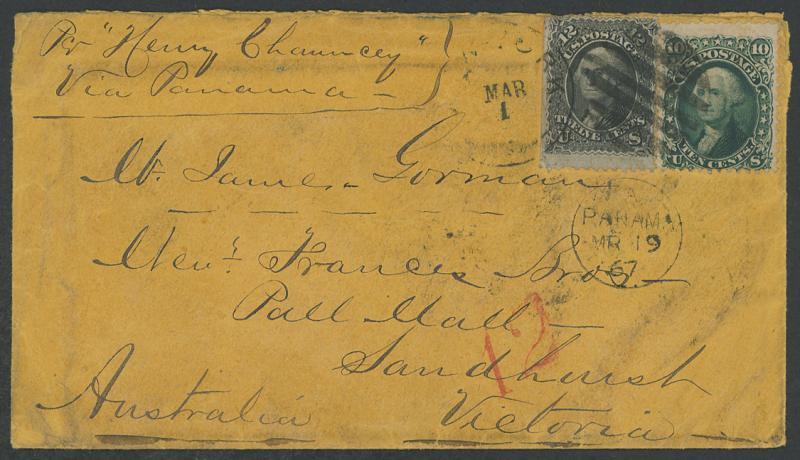 Pr "Henry Chauncey"
Via Panama —
MAR
1
12 12
U.S. POSTAGE
TWELVE CENTS
U S
10 10
U.S. POSTAGE
TEN CENTS
U S
Mr. James Gorman
PANAMA
MR 19
67
Messrs. Frances Bros. —
Pall Mall —
12
Sandhurst
Australia Victoria —